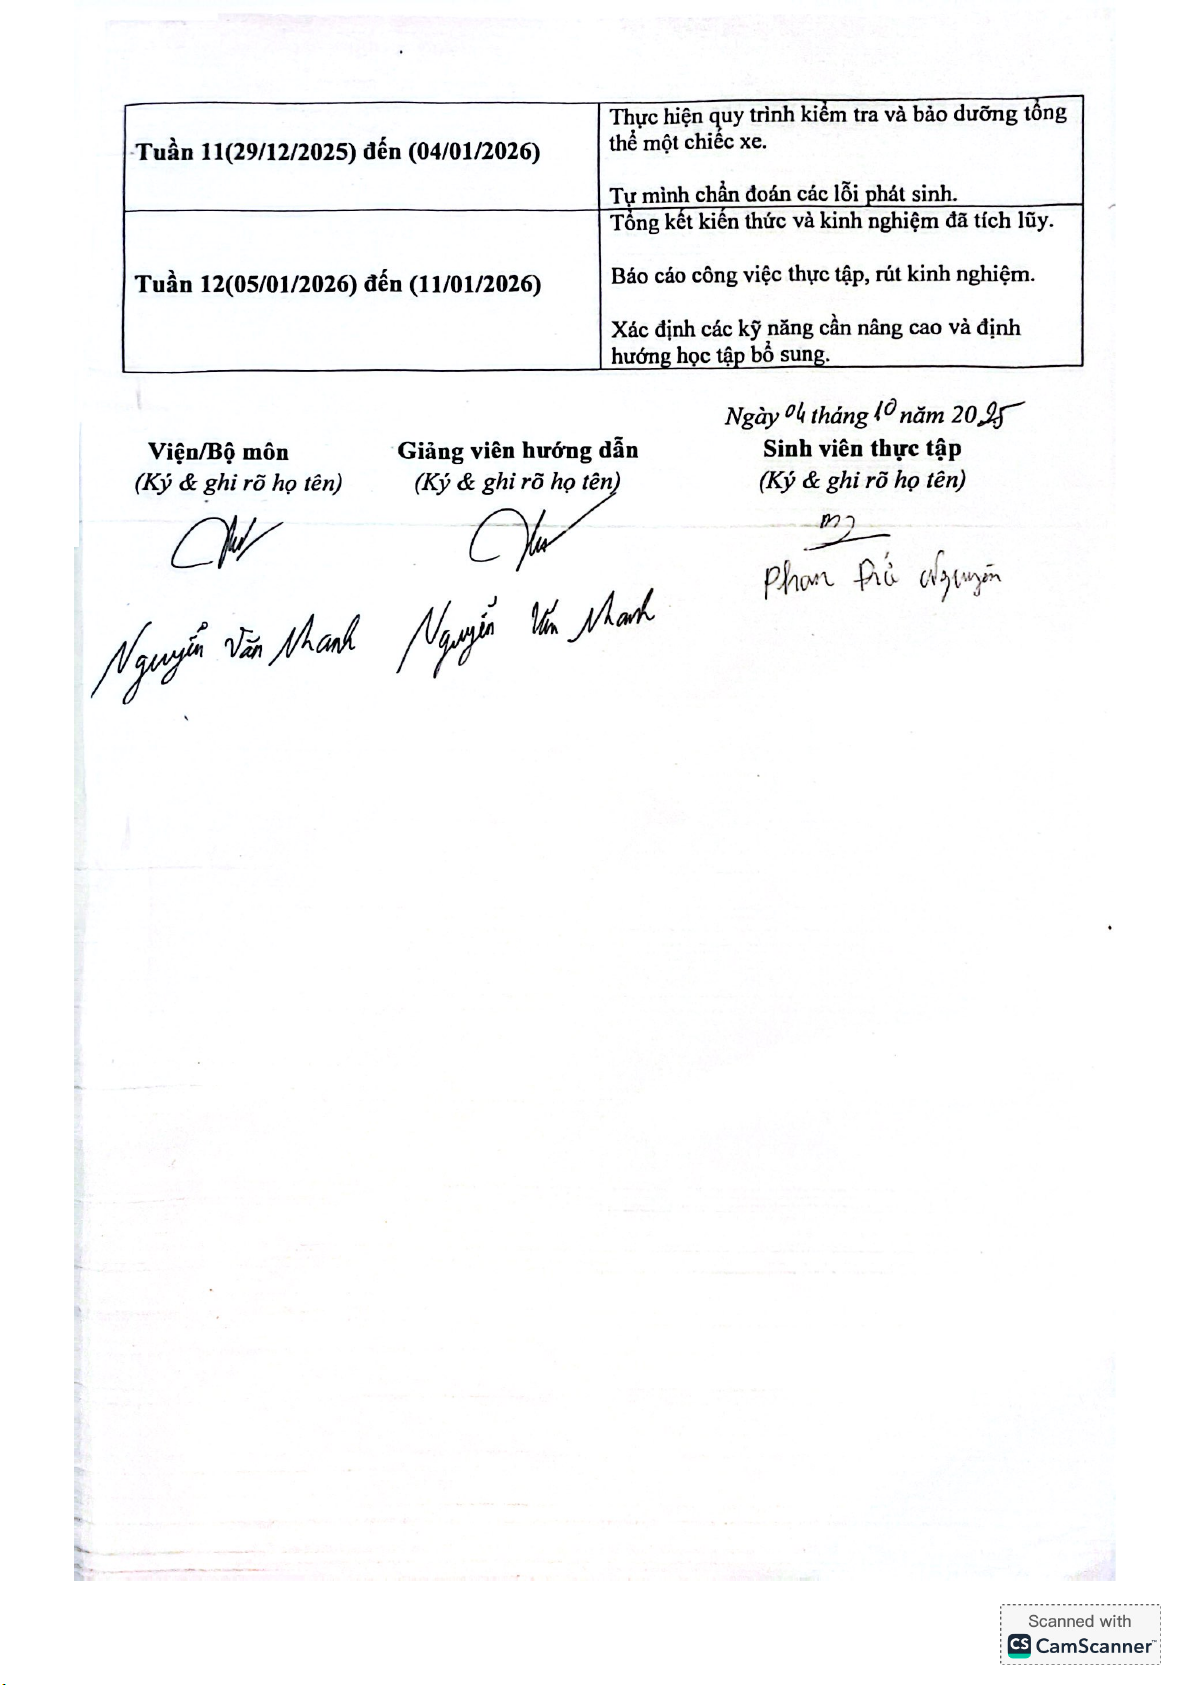 Tuần 11(29/12/2025) đến (04/01/2026)
Thực hiện quy trình kiểm tra và bảo dưỡng tổng
thể một chiếc xe.
Tự mình chẩn đoán các lỗi phát sinh.
Tuần 12(05/01/2026) đến (11/01/2026)
Tổng kết kiến thức và kinh nghiệm đã tích lũy.
Báo cáo công việc thực tập, rút kinh nghiệm.
Xác định các kỹ năng cần nâng cao và định
hướng học tập bổ sung.
Ngày 04 tháng 10 năm 2025
Viện/Bộ môn
(Ký & ghi rõ họ tên)
Nguyễn Văn Nhanh
Giảng viên hướng dẫn
(Ký & ghi rõ họ tên)
Nguyễn Văn Nhanh
Sinh viên thực tập
(Ký & ghi rõ họ tên)
Phan Nguyên
Scanned with
CS CamScanner